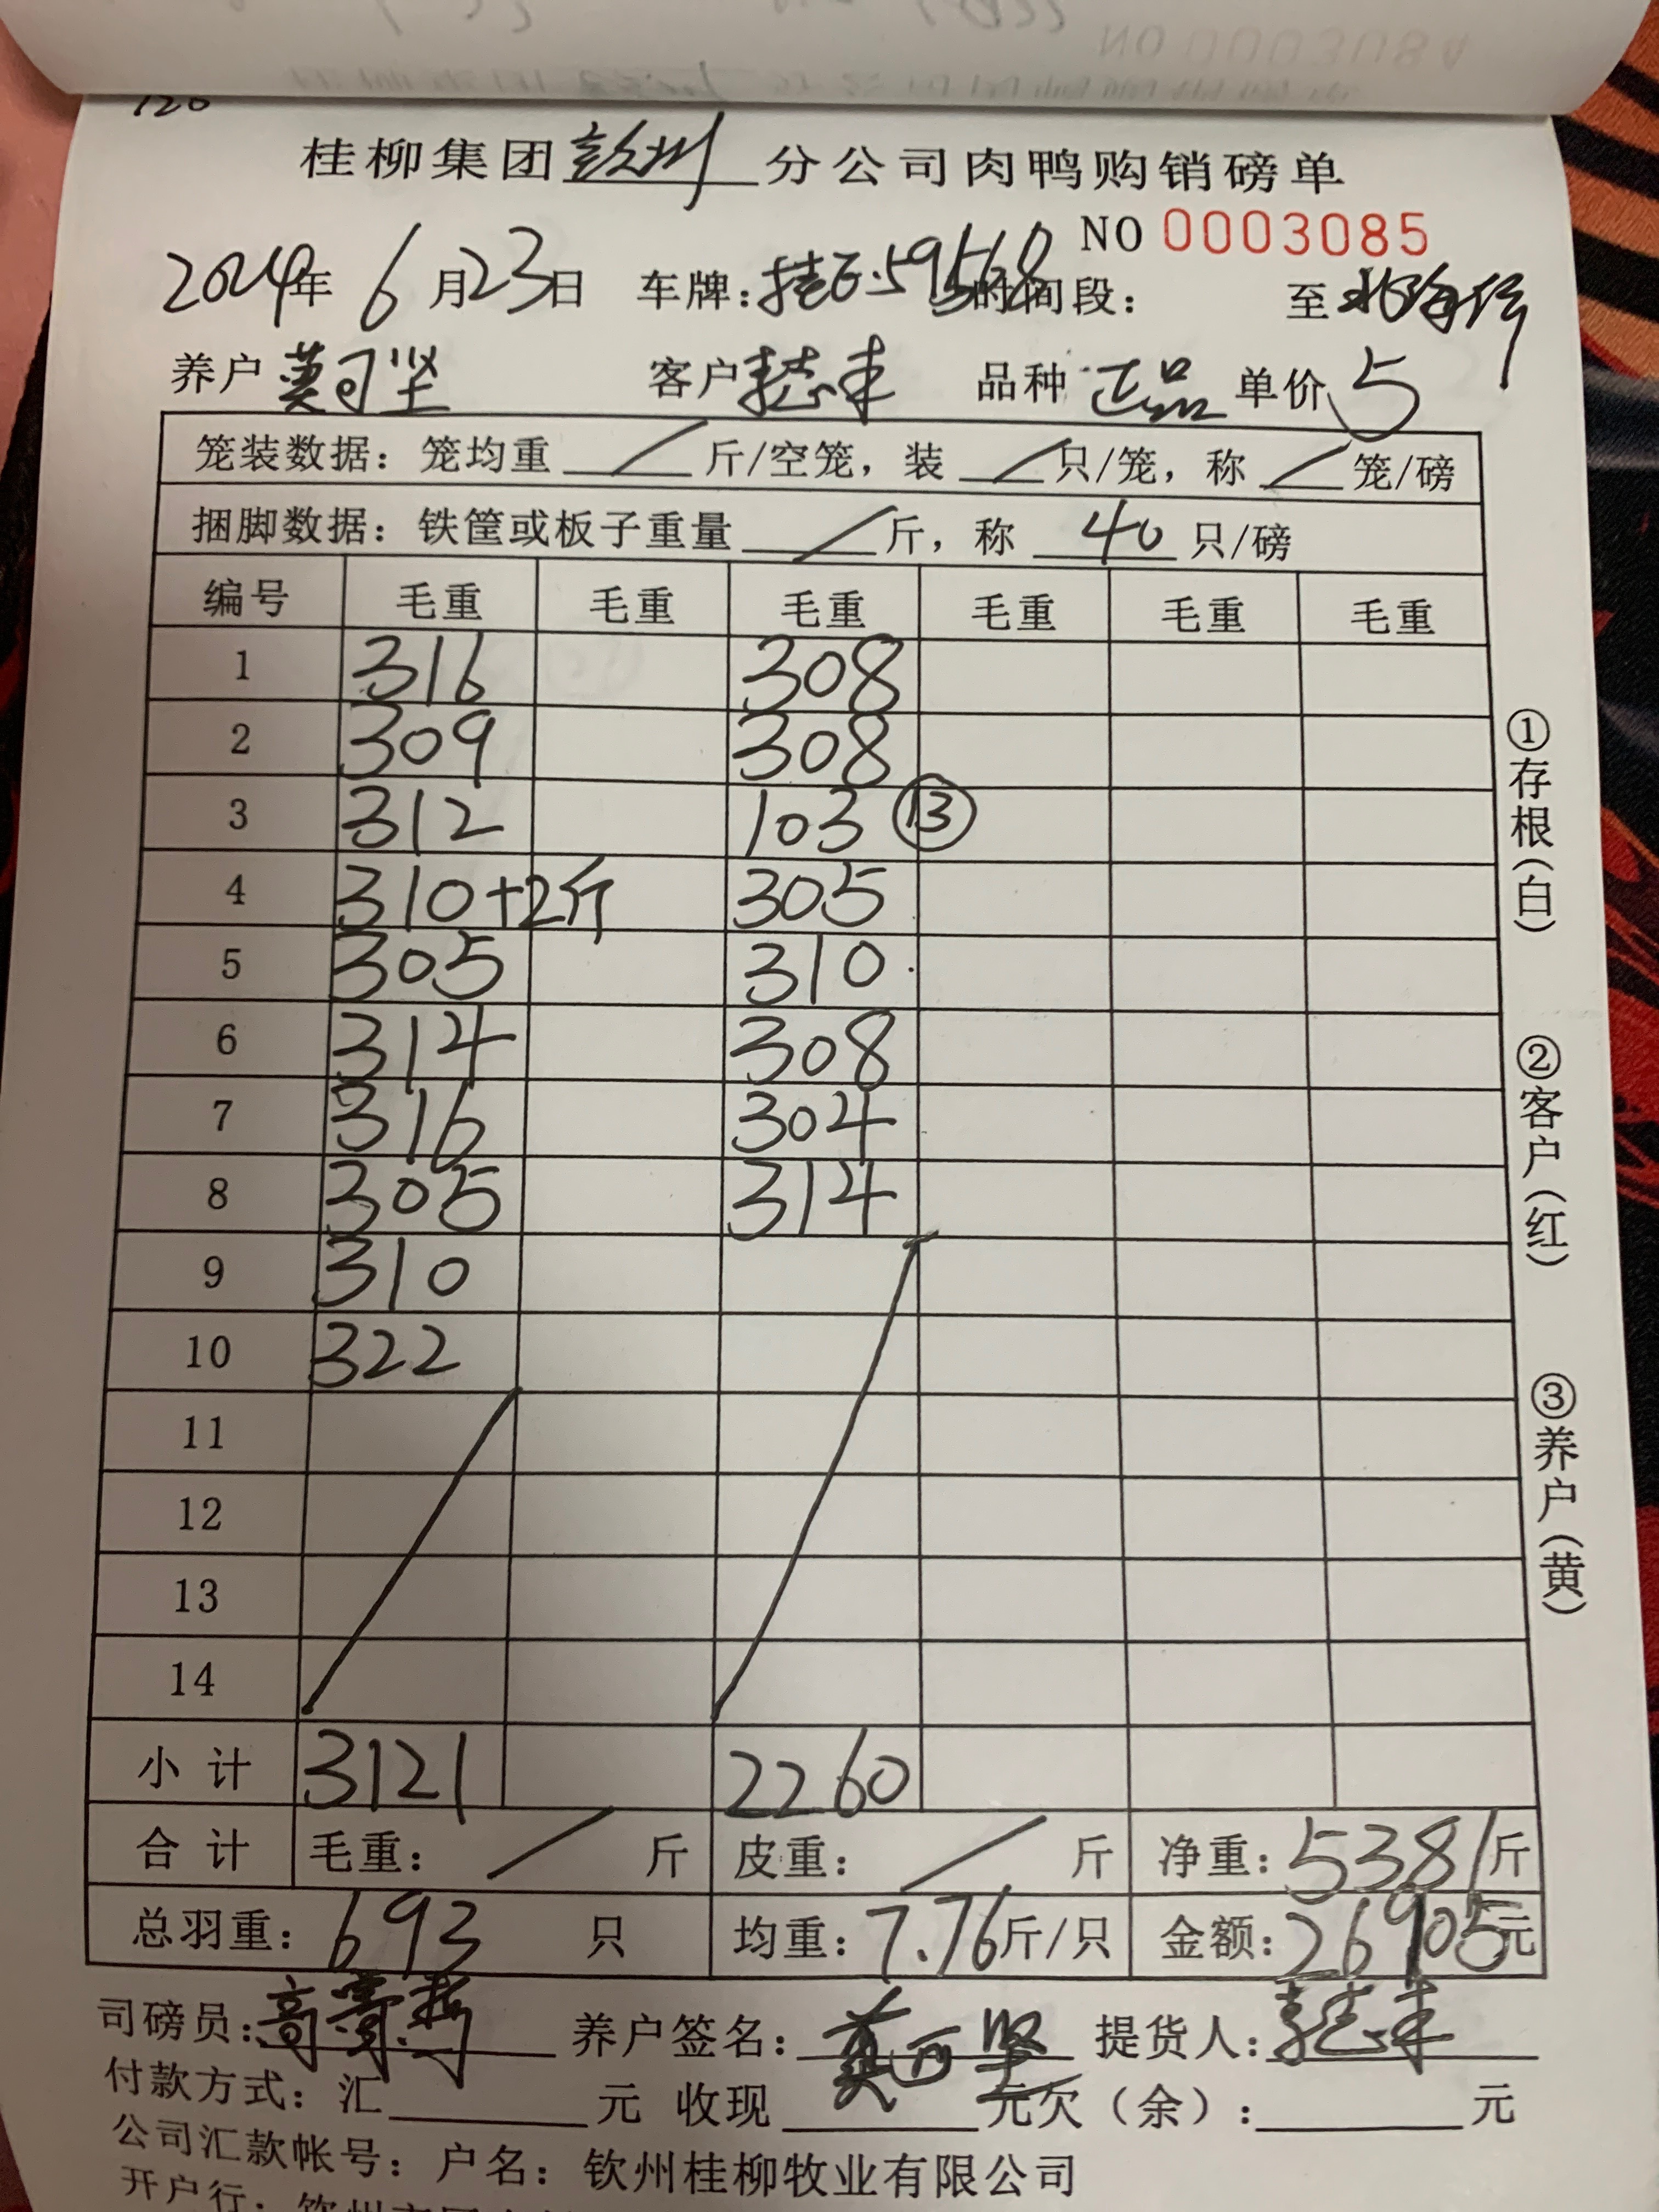 桂柳集团 钦州 分公司肉鸭购销磅单
NO 0003085
2024年 6月23日 车牌：桂E·59568 时间段： 至
养户 莫可坚 客户 品种 正品 单价 5
笼装数据：笼均重 / 斤/空笼，装 / 只/笼，称 / 笼/磅
捆脚数据：铁筐或板子重量 / 斤，称 40 只/磅
编号 毛重 毛重 毛重 毛重 毛重 毛重
1 316 308
2 309 308
3 312 103 ⑬
4 310+2斤 305
5 305 310
6 314 308
7 316 304
8 305 314
9 310
10 322
11
12
13
14
小计 3121 2260
合计 毛重： / 斤 皮重： / 斤 净重：5381斤
总羽重：693 只 均重：7.76斤/只 金额：26905元
司磅员： 养户签名：莫可坚 提货人：
付款方式：汇 元 收现 元欠（余）： 元
公司汇款帐号：户名：钦州桂柳牧业有限公司
开户行：
①存根（白）
②客户（红）
③养户（黄）